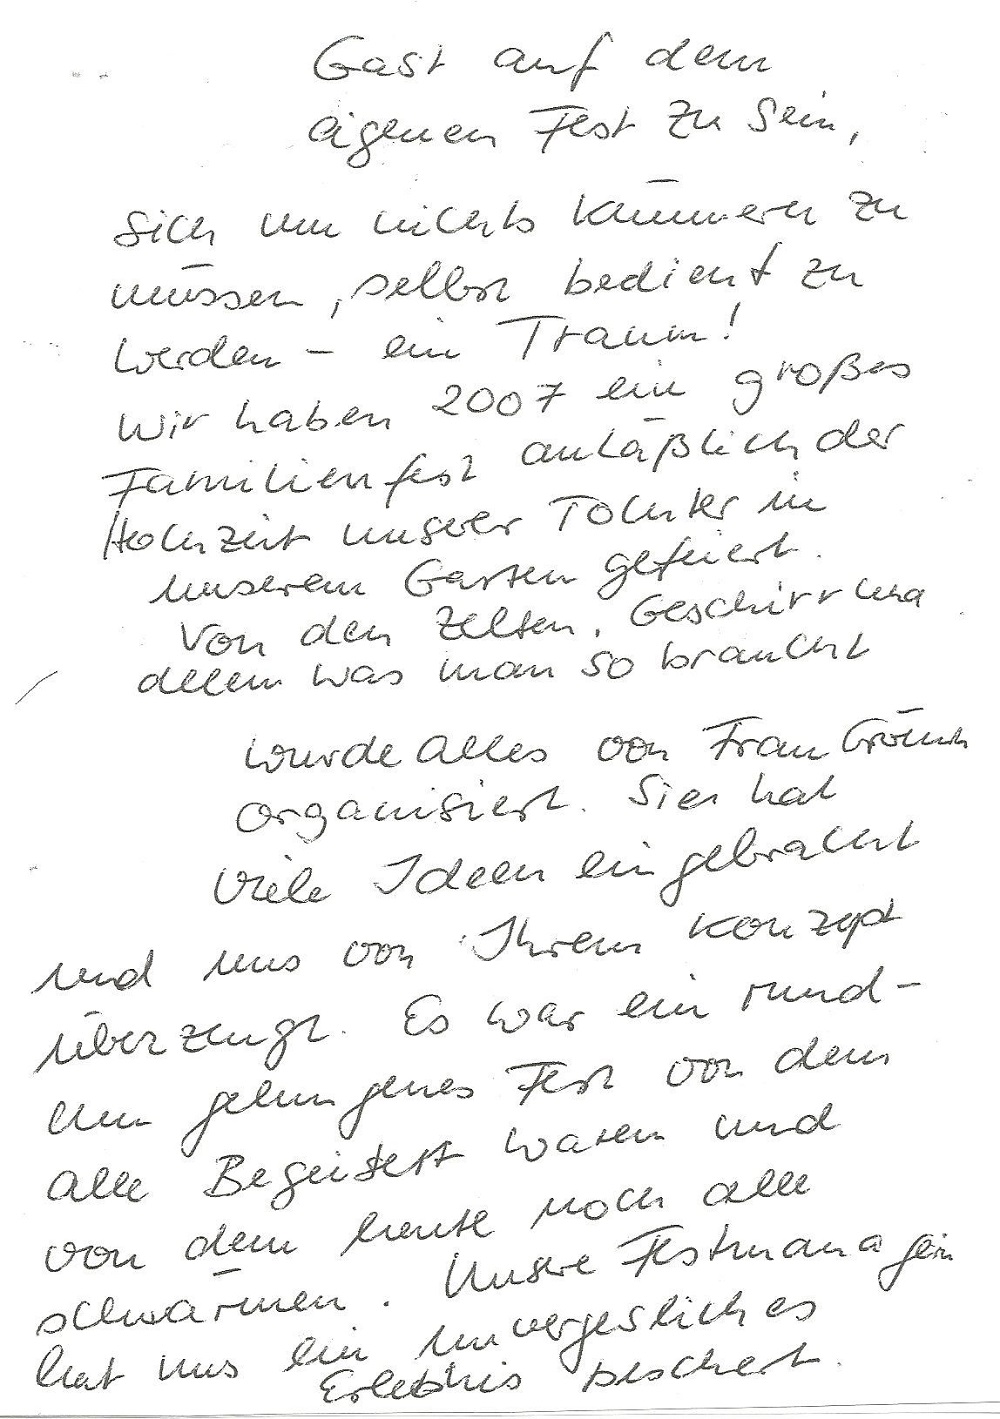 Gast auf dem
eigenen Fest zu sein,
sich um nichts kümmern zu
müssen, selbst bedient zu
werden – ein Traum!
Wir haben 2007 ein großes
Familienfest anläßlich der
Hochzeit unserer Tochter in
unserem Garten gefeiert.
Von den Zelten, Geschirr und
allem was man so braucht
wurde alles von Frau
organisiert. Sie hat
viele Ideen eingebracht
und uns von Ihrem Konzept
überzeugt. Es war ein rund-
um gelungenes Fest von dem
alle Begeistert waren und
von dem heute noch alle
schwärmen. Unsere Festmanagerin
hat uns ein unvergesliches
Erlebnis beschert.